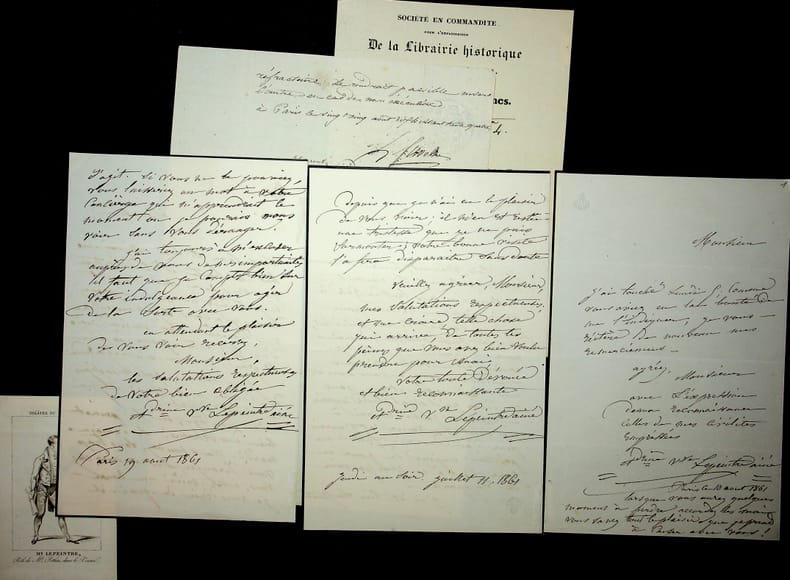 SOCIÉTÉ EN COMMANDITE
POUR L'EXPLOITATION
De la Librairie historique
ncs.
4.
réfractaire. Le rendrait passible envers
l'autre, en cas de non exécution
à Paris le vingt cinq août
s'agit. Si vous ne le pouviez,
vous laisseriez un mot à votre
Concierge qui m'apprendrait le
moment où je pourrais vous
voir sans vous déranger.
J'ai toujours à m'excuser
auprès de vous de mes importunités
il faut que je compte bien sur
votre indulgence pour agir
de la sorte avec vous.
en attendant le plaisir
de vous voir recevez,
Monsieur,
les salutations respectueuses
de votre bien obligée
Vve Lepeintre aîné
Paris 19 août 1861
Depuis que je n'ai eu le plaisir
de vous voir, il m'en est resté
une tristesse que je ne puis
surmonter; votre bonne visite
la fera disparaître sans doute
veuillez agréer, Monsieur,
mes salutations respectueuses,
et me croire, cette chose
qui arrive, de toutes les
peines que vous avez bien voulu
prendre pour moi
votre toute Dévouée
et bien reconnaissante
Vve Lepeintre aîné
Jeudi au soir juillet 11. 1861
Monsieur
J'ai touché Lundi comme
vous aviez eu la bonté de
me l'indiquer, je vous
réitère de nouveau mes
remerciemens
agréez
Monsieur
avec l'expression
de ma reconnaissance
celles de mes civilités
empressées
Vve Lepeintre aîné
Paris, le 10 août 1861
lorsque vous aurez quelques
moments à perdre
vous savez tout le plaisir que je prend
à causer avec vous!
THÉÂTRE DU
Mr. LEPEINTRE,
Rôle de Mr. dans le